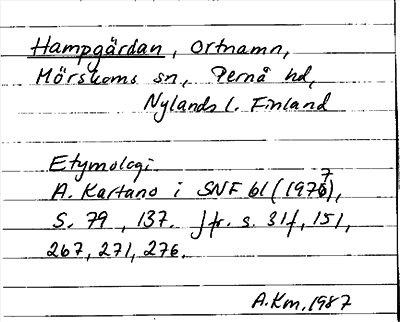 Hampgärdan, Ortnamn,
Mörskoms sn, Pernå hd,
Nylands l. Finland
Etymologi
A. Kartano i SNF 61 (1977),
S. 79, 137. Jfr. s. 31f, 151,
267, 271, 276.
A.Km.1987